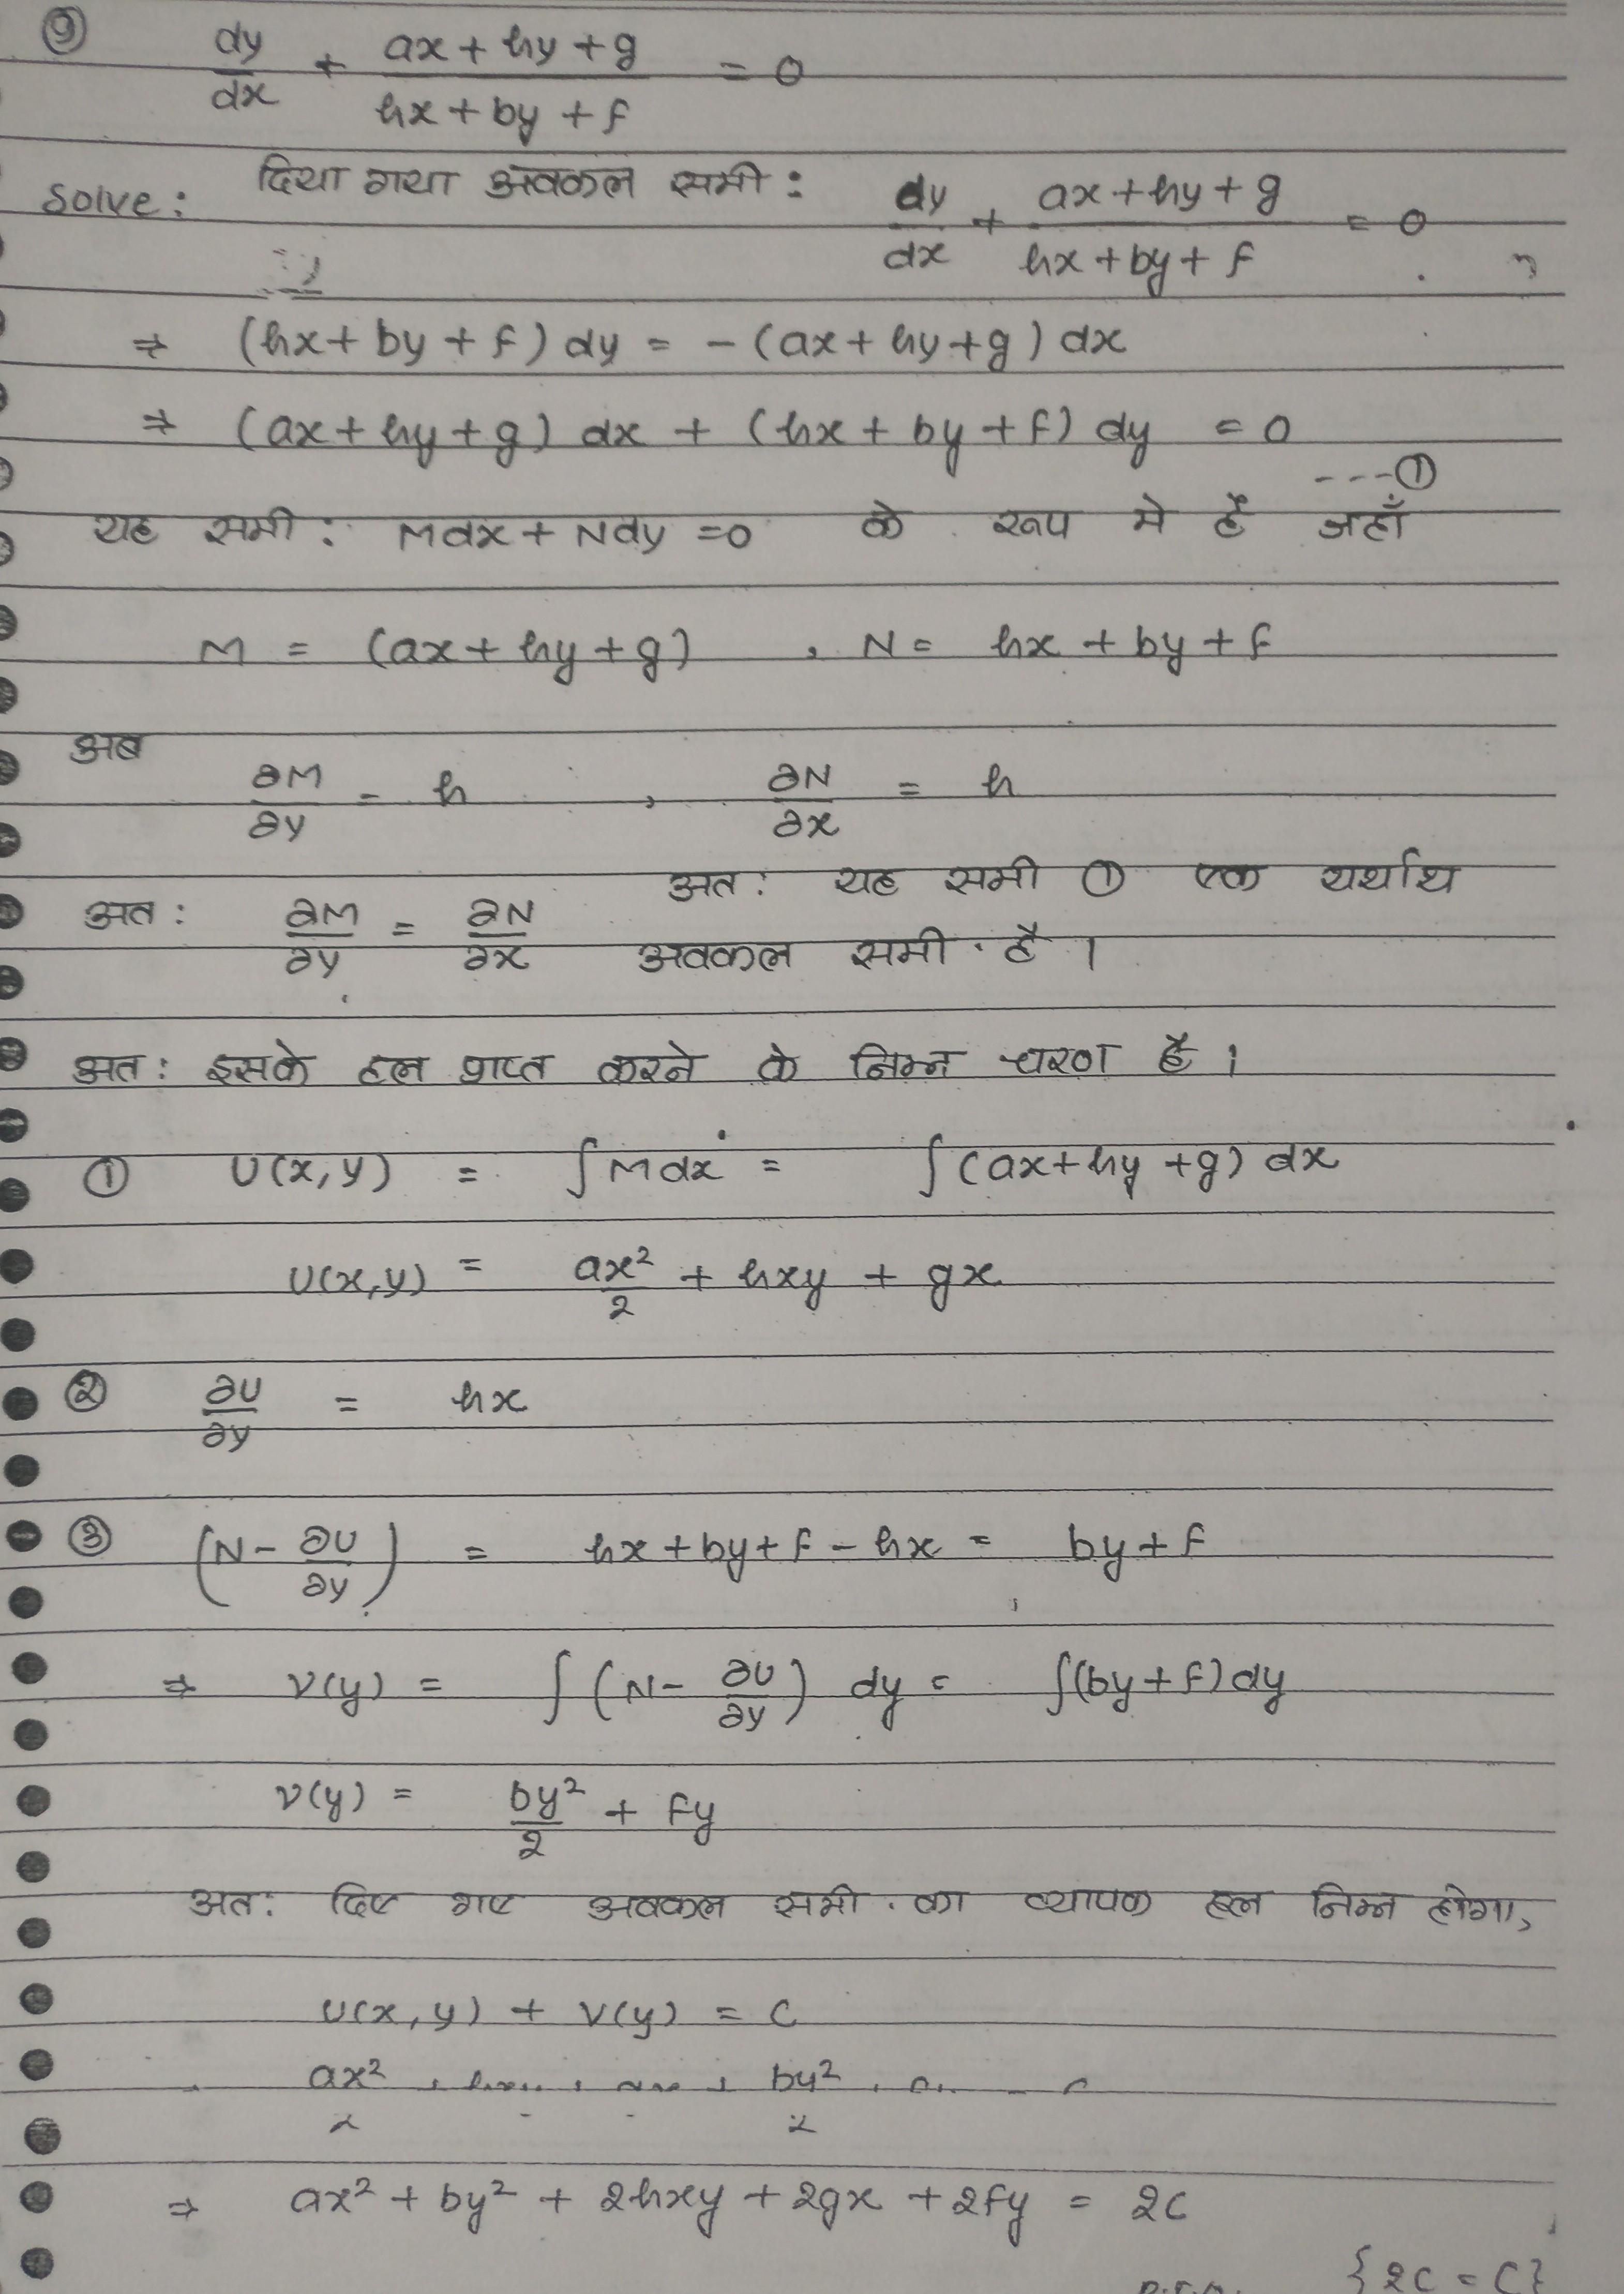 ⑨ dy/dx + (ax + hy + g)/(hx + by + f) = 0
Solve: दिया गया अवकल समी: dy/dx + (ax + hy + g)/(hx + by + f) = 0
⇒ (hx + by + f) dy = - (ax + hy + g) dx
⇒ (ax + hy + g) dx + (hx + by + f) dy = 0
---①
यह समी: Mdx + Ndy = 0 के रूप मे हैं जहाँ
M = (ax + hy + g) , N = hx + by + f
अब
∂M/∂y = h , ∂N/∂x = h
अत: ∂M/∂y = ∂N/∂x अत: यह समी ① एक यर्थाथ
अवकल समी. है।
अत: इसके हल प्राप्त करने के निम्न चरण है।
① U(x,y) = ∫Mdx = ∫(ax + hy + g) dx
U(x,y) = ax²/2 + hxy + gx
② ∂U/∂y = hx
③ (N - ∂U/∂y) = hx + by + f - hx = by + f
⇒ V(y) = ∫(N - ∂U/∂y) dy = ∫(by + f) dy
V(y) = by²/2 + fy
अत: दिए गए अवकल समी. का व्यापक हल निम्न होगा,
U(x,y) + V(y) = C
ax² by²
⇒ ax² + by² + 2hxy + 2gx + 2fy = 2C
{2C = C}